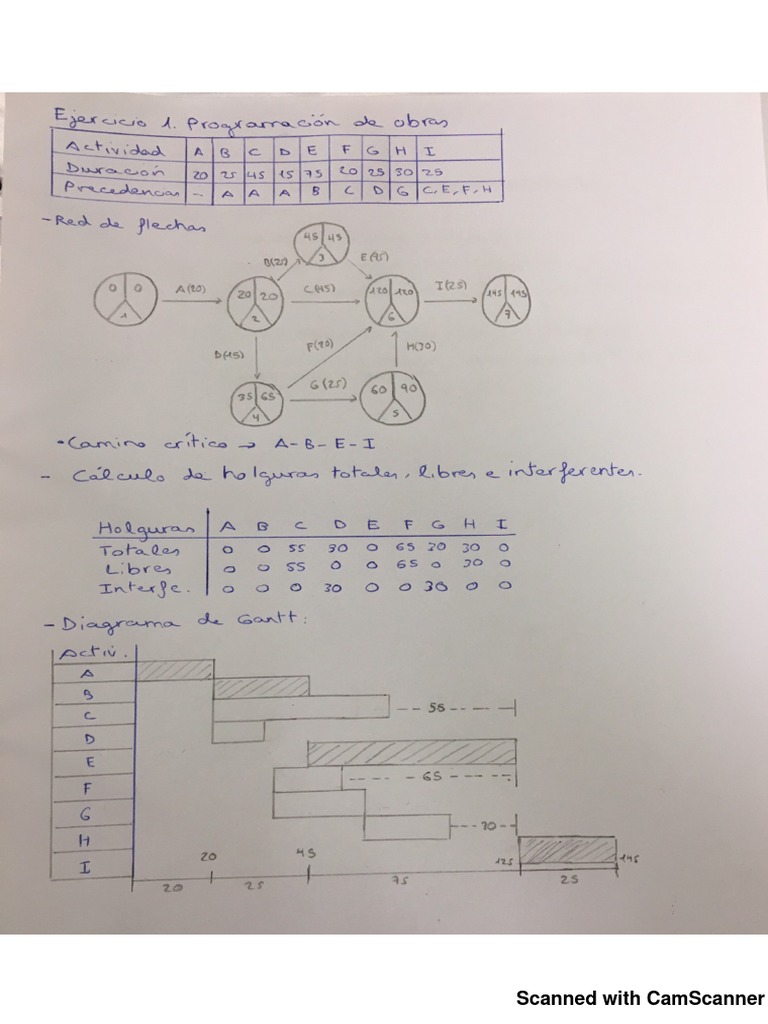 Ejercicio 1. Programación de obras
Actividad A B C D E F G H I
Duración 20 25 45 15 75 20 25 30 25
Precedencias - A A A B C D G C,E,F,H
- Red de flechas
45 45
3
B(25) E(75)
0 0
1
A(20)
20 20
2
C(45)
120 120
6
I(25)
145 145
7
D(15) F(20) H(30)
35 65
4
G(25)
60 90
5
• Camino crítico → A-B-E-I
- Cálculo de holguras totales, libres e interferentes.
Holguras A B C D E F G H I
Totales 0 0 55 30 0 65 30 30 0
Libres 0 0 55 0 0 65 0 30 0
Interfe. 0 0 0 30 0 0 30 0 0
- Diagrama de Gantt:
Activ.
A
B
C -- 55 --
D
E
F -- 65 --
G
H -- 30 --
I
20 45 125 145
20 25 75 25
Scanned with CamScanner